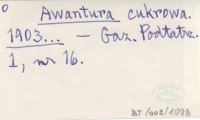 Awantura cukrowa.
1903... – Gaz. Podtatrz.
1, nr 16.
BT/002/1098